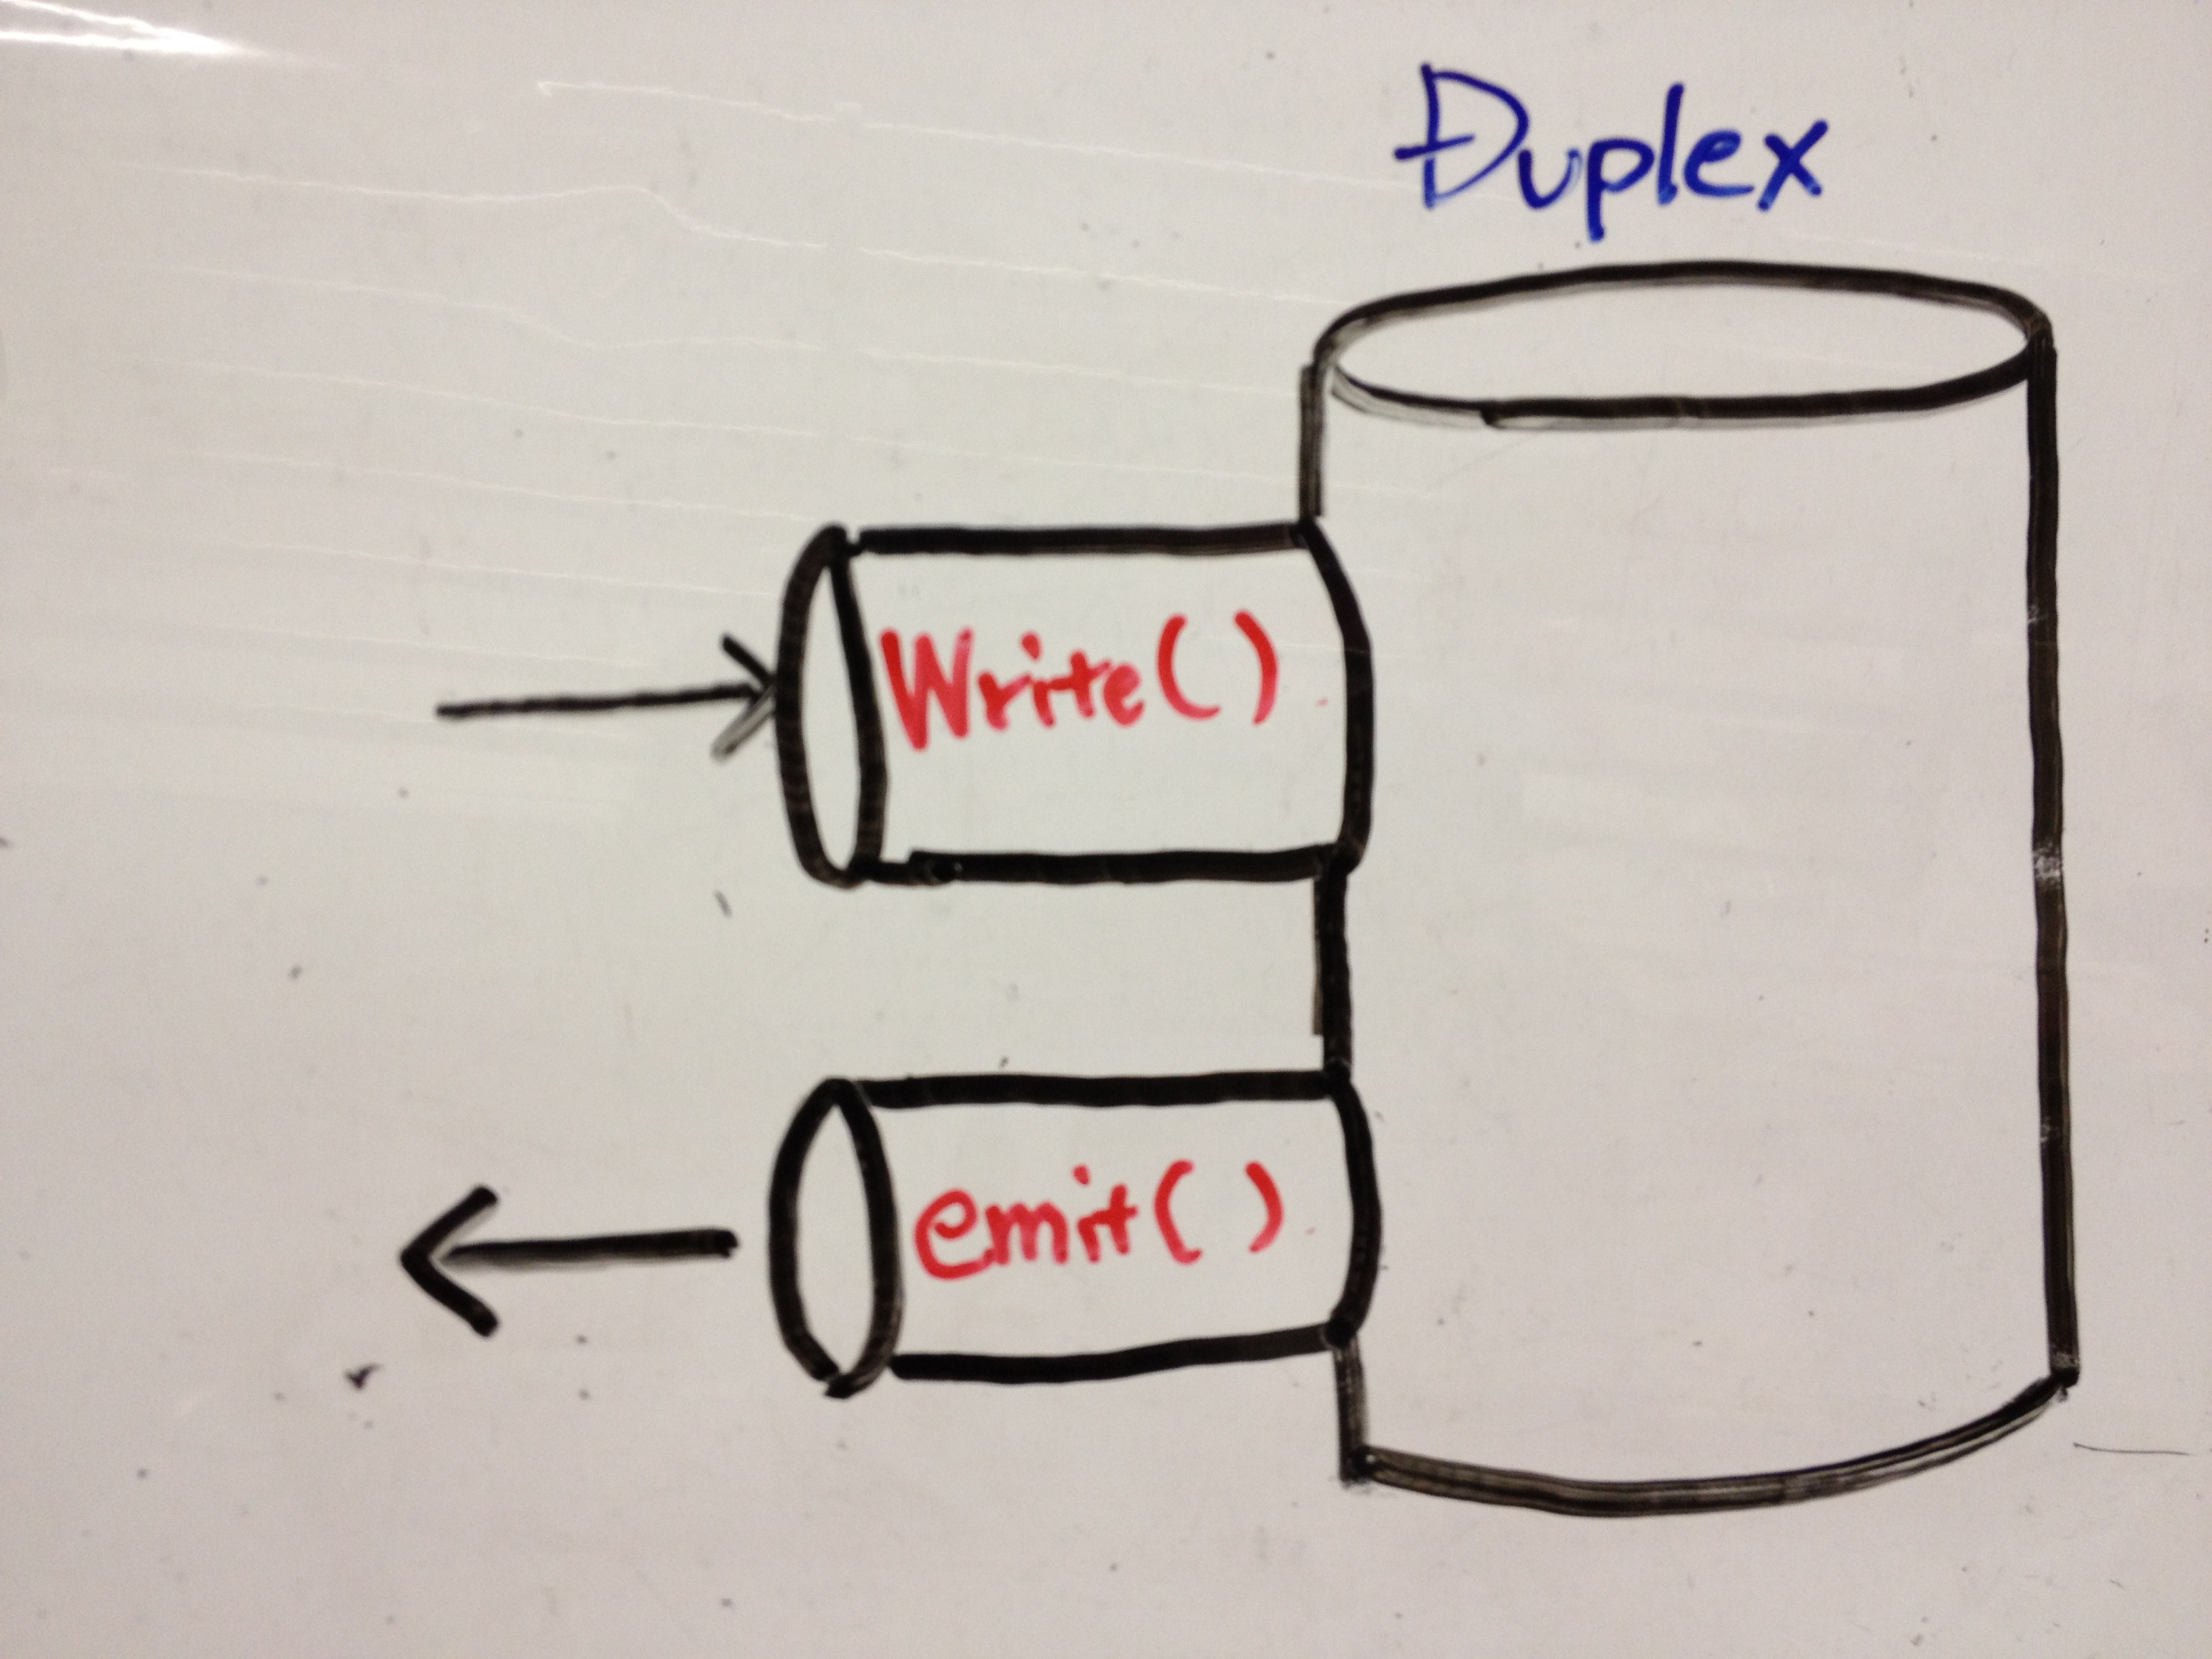 Duplex
Write()
emit()